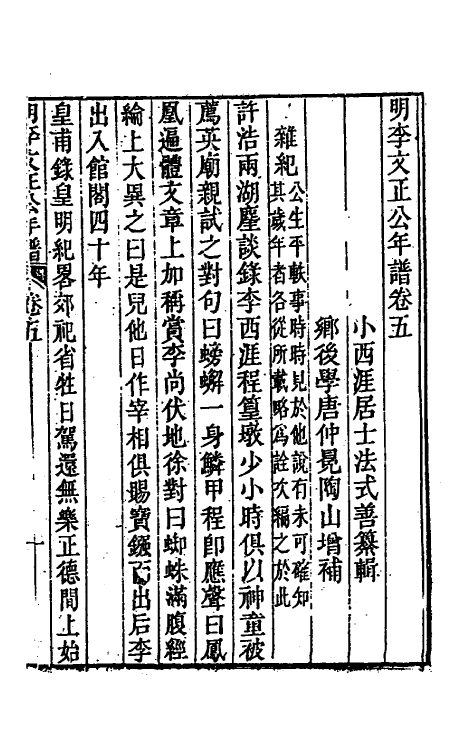 明李文正公年譜卷五
小西涯居士法式善纂輯
鄉後學唐仲冕陶山增補
雜紀公生平軼事時時見於他說有未可確知
其歲年者各從所載略為詮次編之於此
許浩兩湖塵談錄李西涯程篁墩少小時俱以神童被
薦英廟親試之對句曰螃蠏一身鱗甲程卽應聲曰鳳
凰遍體文章上加稱賞李尚伏地徐對曰蜘蛛滿腹經
綸上大異之曰是兒他日作宰相俱賜寶鏹而出后李
出入館閣四十年
皇甫錄皇明紀畧郊祀省牲日駕還無樂正德間上始
明李文正公年譜 卷五 一